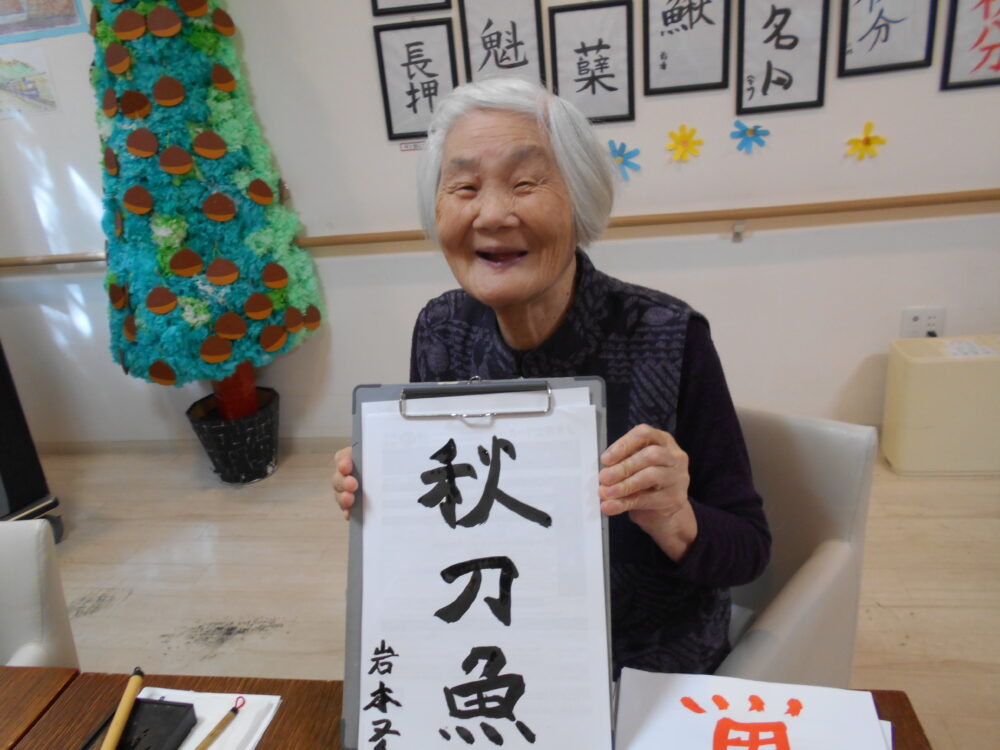 長押
魁
蘖
鰍
名月
分
秋分
秋刀魚
岩本又